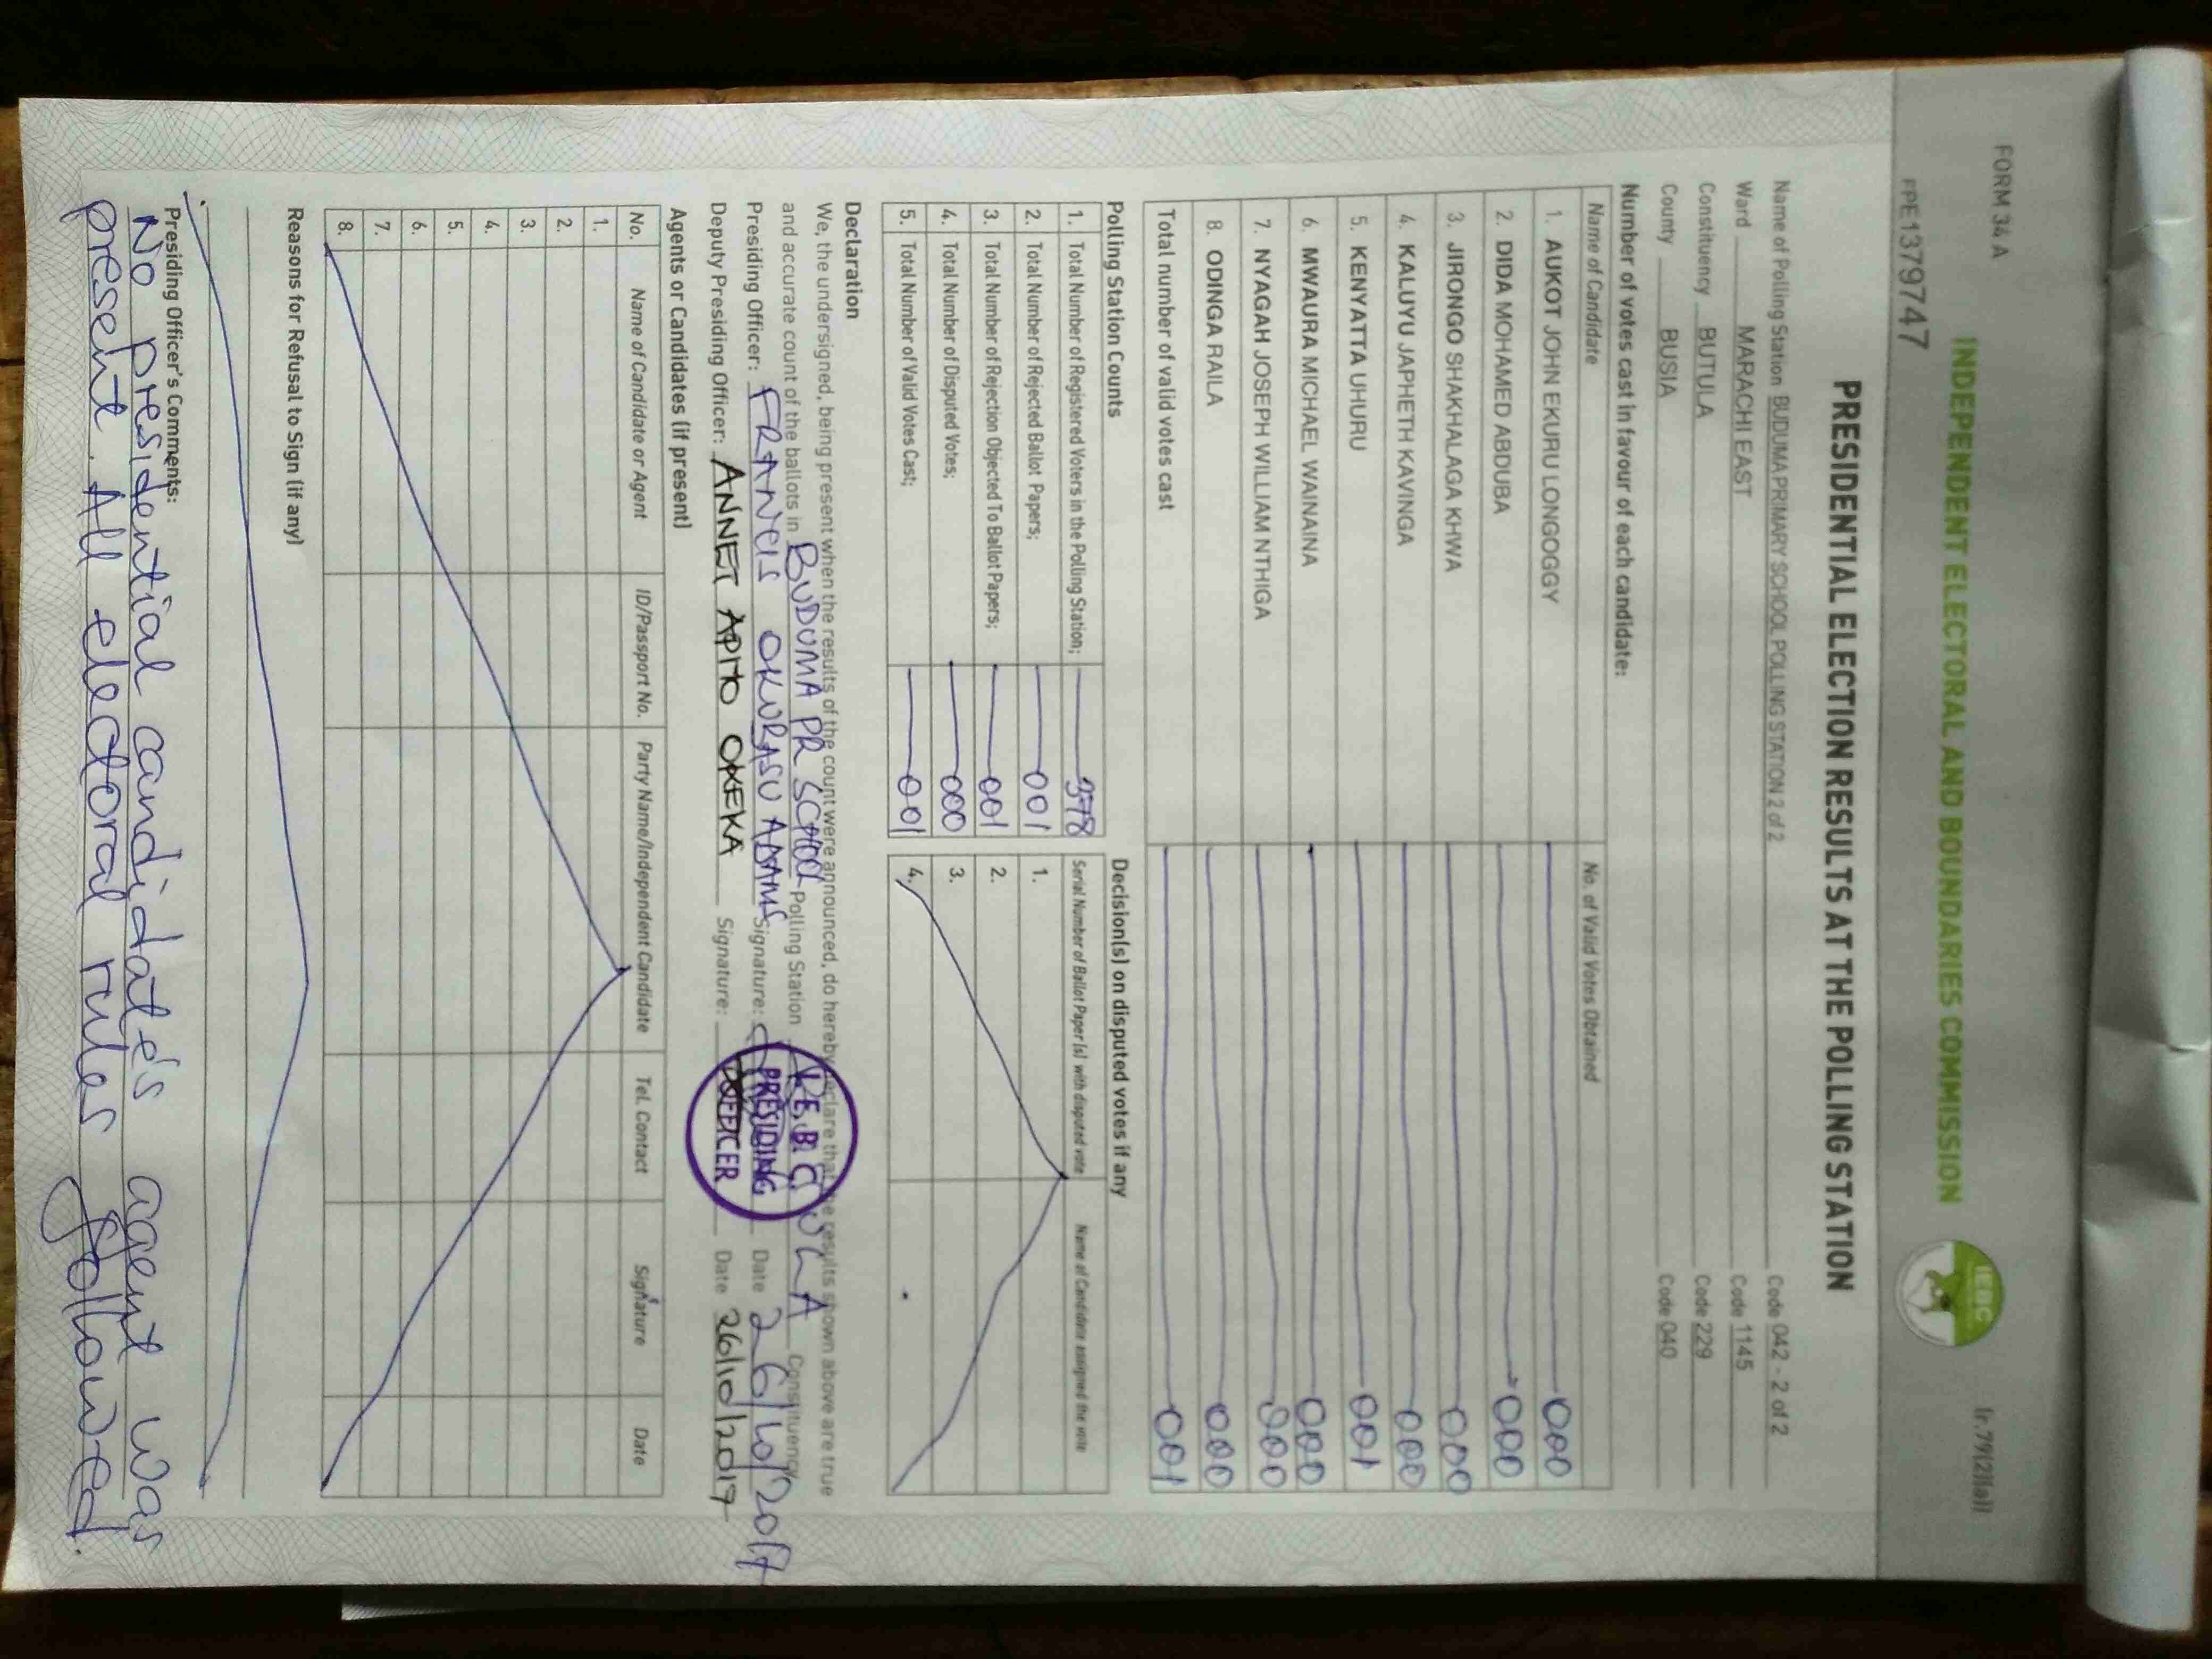 FORM 34 A
(r.79(2)(a))
INDEPENDENT ELECTORAL AND BOUNDARIES COMMISSION
IEBC
PPE1379747
PRESIDENTIAL ELECTION RESULTS AT THE POLLING STATION
Name of Polling Station BUDUMA PRIMARY SCHOOL POLLING STATION 2 of 2 Code 042 - 2 of 2
Ward MARACHI EAST Code 1145
Constituency BUTULA Code 229
County BUSIA Code 040
Number of votes cast in favour of each candidate:
Name of Candidate No. of Valid Votes Obtained
1. AUKOT JOHN EKURU LONGOGGY 000
2. DIDA MOHAMED ABDUBA 000
3. JIRONGO SHAKHALAGA KHWA 000
4. KALUYU JAPHETH KAVINGA 000
5. KENYATTA UHURU 001
6. MWAURA MICHAEL WAINAINA 000
7. NYAGAH JOSEPH WILLIAM NTHIGA 000
8. ODINGA RAILA 000
Total number of valid votes cast 001
Polling Station Counts
1. Total Number of Registered Voters in the Polling Station; 378
2. Total Number of Rejected Ballot Papers; 001
3. Total Number of Rejection Objected To Ballot Papers; 001
4. Total Number of Disputed Votes; 000
5. Total Number of Valid Votes Cast; 001
Decision(s) on disputed votes if any
Serial Number of Ballot Paper (s) with disputed vote Name of Candidate assigned the vote
1.
2.
3.
4.
Declaration
We, the undersigned, being present when the results of the count were announced, do hereby declare that the results shown above are true
and accurate count of the ballots in BUDUMA PR SCHOOL Polling Station Constituency
Presiding Officer: FRANCIS OKUBASU ADAMS Signature: Date 26/10/2017
Deputy Presiding Officer: ANNET APITO OKEKA Signature: Date 26/10/2017
I.E.B.C.
PRESIDING
OFFICER
Agents or Candidates (if present)
No. Name of Candidate or Agent ID/Passport No. Party Name/Independent Candidate Tel. Contact Signature Date
1.
2.
3.
4.
5.
6.
7.
8.
Reasons for Refusal to Sign (if any)
Presiding Officer's Comments:
No presidential candidate's agent was
present. All electoral rules followed.